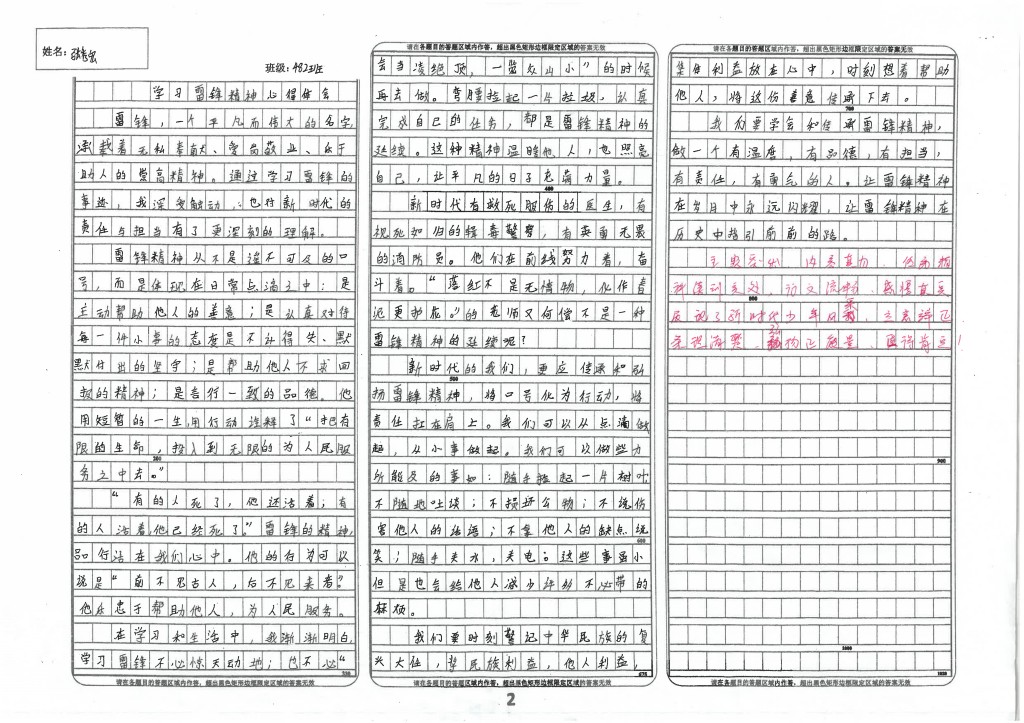 姓名：
班级：482班
学习雷锋精神心得体会
雷锋，一个平凡而伟大的名字，
承载着无私奉献、爱岗敬业、乐于
助人的崇高精神。通过学习雷锋的
事迹，我深受触动，也对新时代的
责任与担当有了更深刻的理解。
雷锋精神从不是遥不可及的口
号，而是体现在日常点滴之中：是
主动帮助他人的善意；是认真对待
每一件小事的态度是不计得失、默
默付出的坚守；是帮助他人不求回
报的精神；是言行一致的品德。他
用短暂的一生用行动诠释了“把有
限的生命，投入到无限的为人民服
200
务之中去。”
“有的人死了，他还活着；有
的人活着，他已经死了。”雷锋的精神，
品行活在我们心中。他的行为可以
说是“前不见古人，后不见来者。”
他忠于帮助他人，为人民服务。
在学习和生活中，我渐渐明白，
学习雷锋不必惊天动地；也不必“
请在各题目的答题区域内作答，超出黑色矩形边框限定区域的答案无效
请在各题目的答题区域内作答，超出黑色矩形边框限定区域的答案无效
会当凌绝顶，一览众山小”的时候
再去做。弯腰捡起一片垃圾，认真
完成自己的任务，都是雷锋精神的
延续。这种精神温暖他人，也照亮
自己，让平凡的日子充满力量。
400
新时代有救死服伤的医生，有
视死如归的缉毒警察，有英勇无畏
的消防员。他们在前线努力着，奋
斗着。“落红不是无情物，化作春
泥更护花。”的老师又何偿不是一种
雷锋精神的延续呢？
新时代的我们，更应传承和弘
500
扬雷锋精神，将口号化为行动，将
责任扛在肩上。我们可以从点滴做
起，从小事做起。我们可以做些力
所能及的事如：随手捡起一片树叶；
不随地吐痰；不损坏公物；不说伤
害他人的话语；不拿他人的缺点说
600
笑；随手关水，关电。这些事虽小
但是也会给他人减少许些不必带的
麻烦。
我们要时刻警记中华民族的复
兴大任，把民族利益，他人利益，
675
请在各题目的答题区域内作答，超出黑色矩形边框限定区域的答案无效
2
请在各题目的答题区域内作答，超出黑色矩形边框限定区域的答案无效
集体利益放在心中，时刻想着帮助
他人，将这份善意传承下去。
700
我们要学会和传承雷锋精神，
做一个有温度，有品德，有担当，
有责任，有勇气的人。让雷锋精神
在岁月中永远闪耀，让雷锋精神在
历史中指引前前的路。
主题突出，内容真切，
深刻，行文流畅，感情真实
800
反映了新时代少年风采，立意端正
正能量，值得肯定！
900
1000
1050
请在各题目的答题区域内作答，超出黑色矩形边框限定区域的答案无效